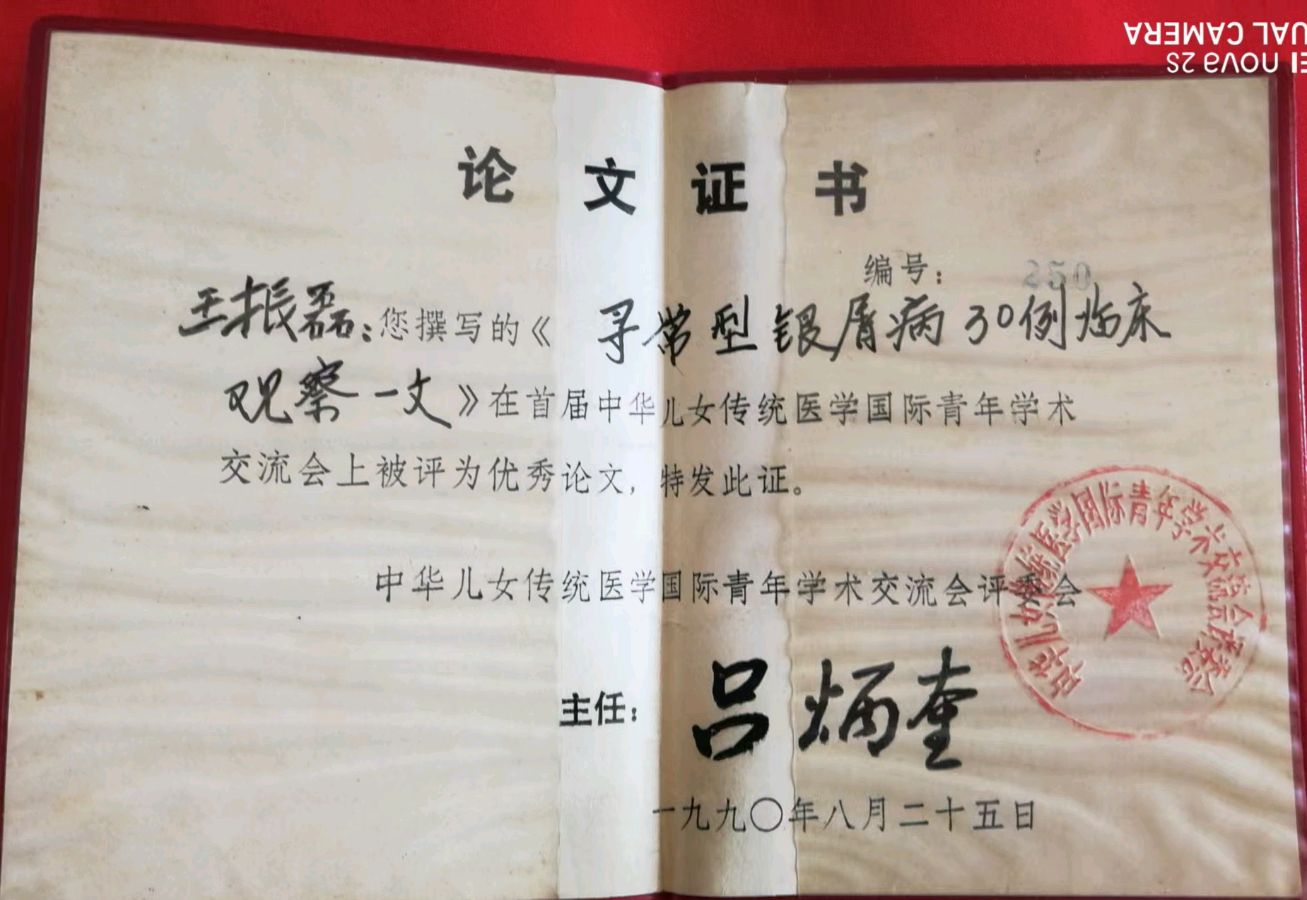 论文证书
编号：250
王振磊：您撰写的《寻常型银屑病30例临床
观察一文》在首届中华儿女传统医学国际青年学术
交流会上被评为优秀论文，特发此证。
中华儿女传统医学国际青年学术交流会评委会
主任：吕炳奎
一九九〇年八月二十五日
中华儿女传统医学国际青年学术交流会评委会
UAL CAMERA
EI nova 2S